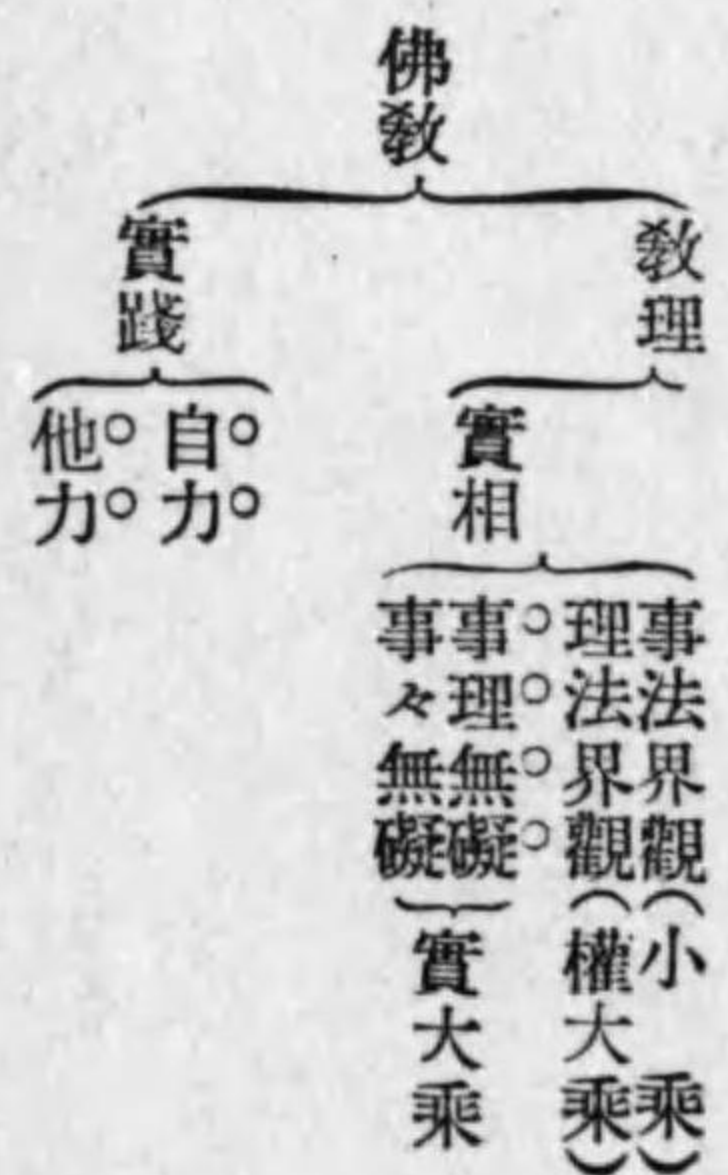 佛教
教理
實相
事法界觀(小乘)
理法界觀(權大乘)
事理無礙
事々無礙
實大乘
實踐
自力
他力